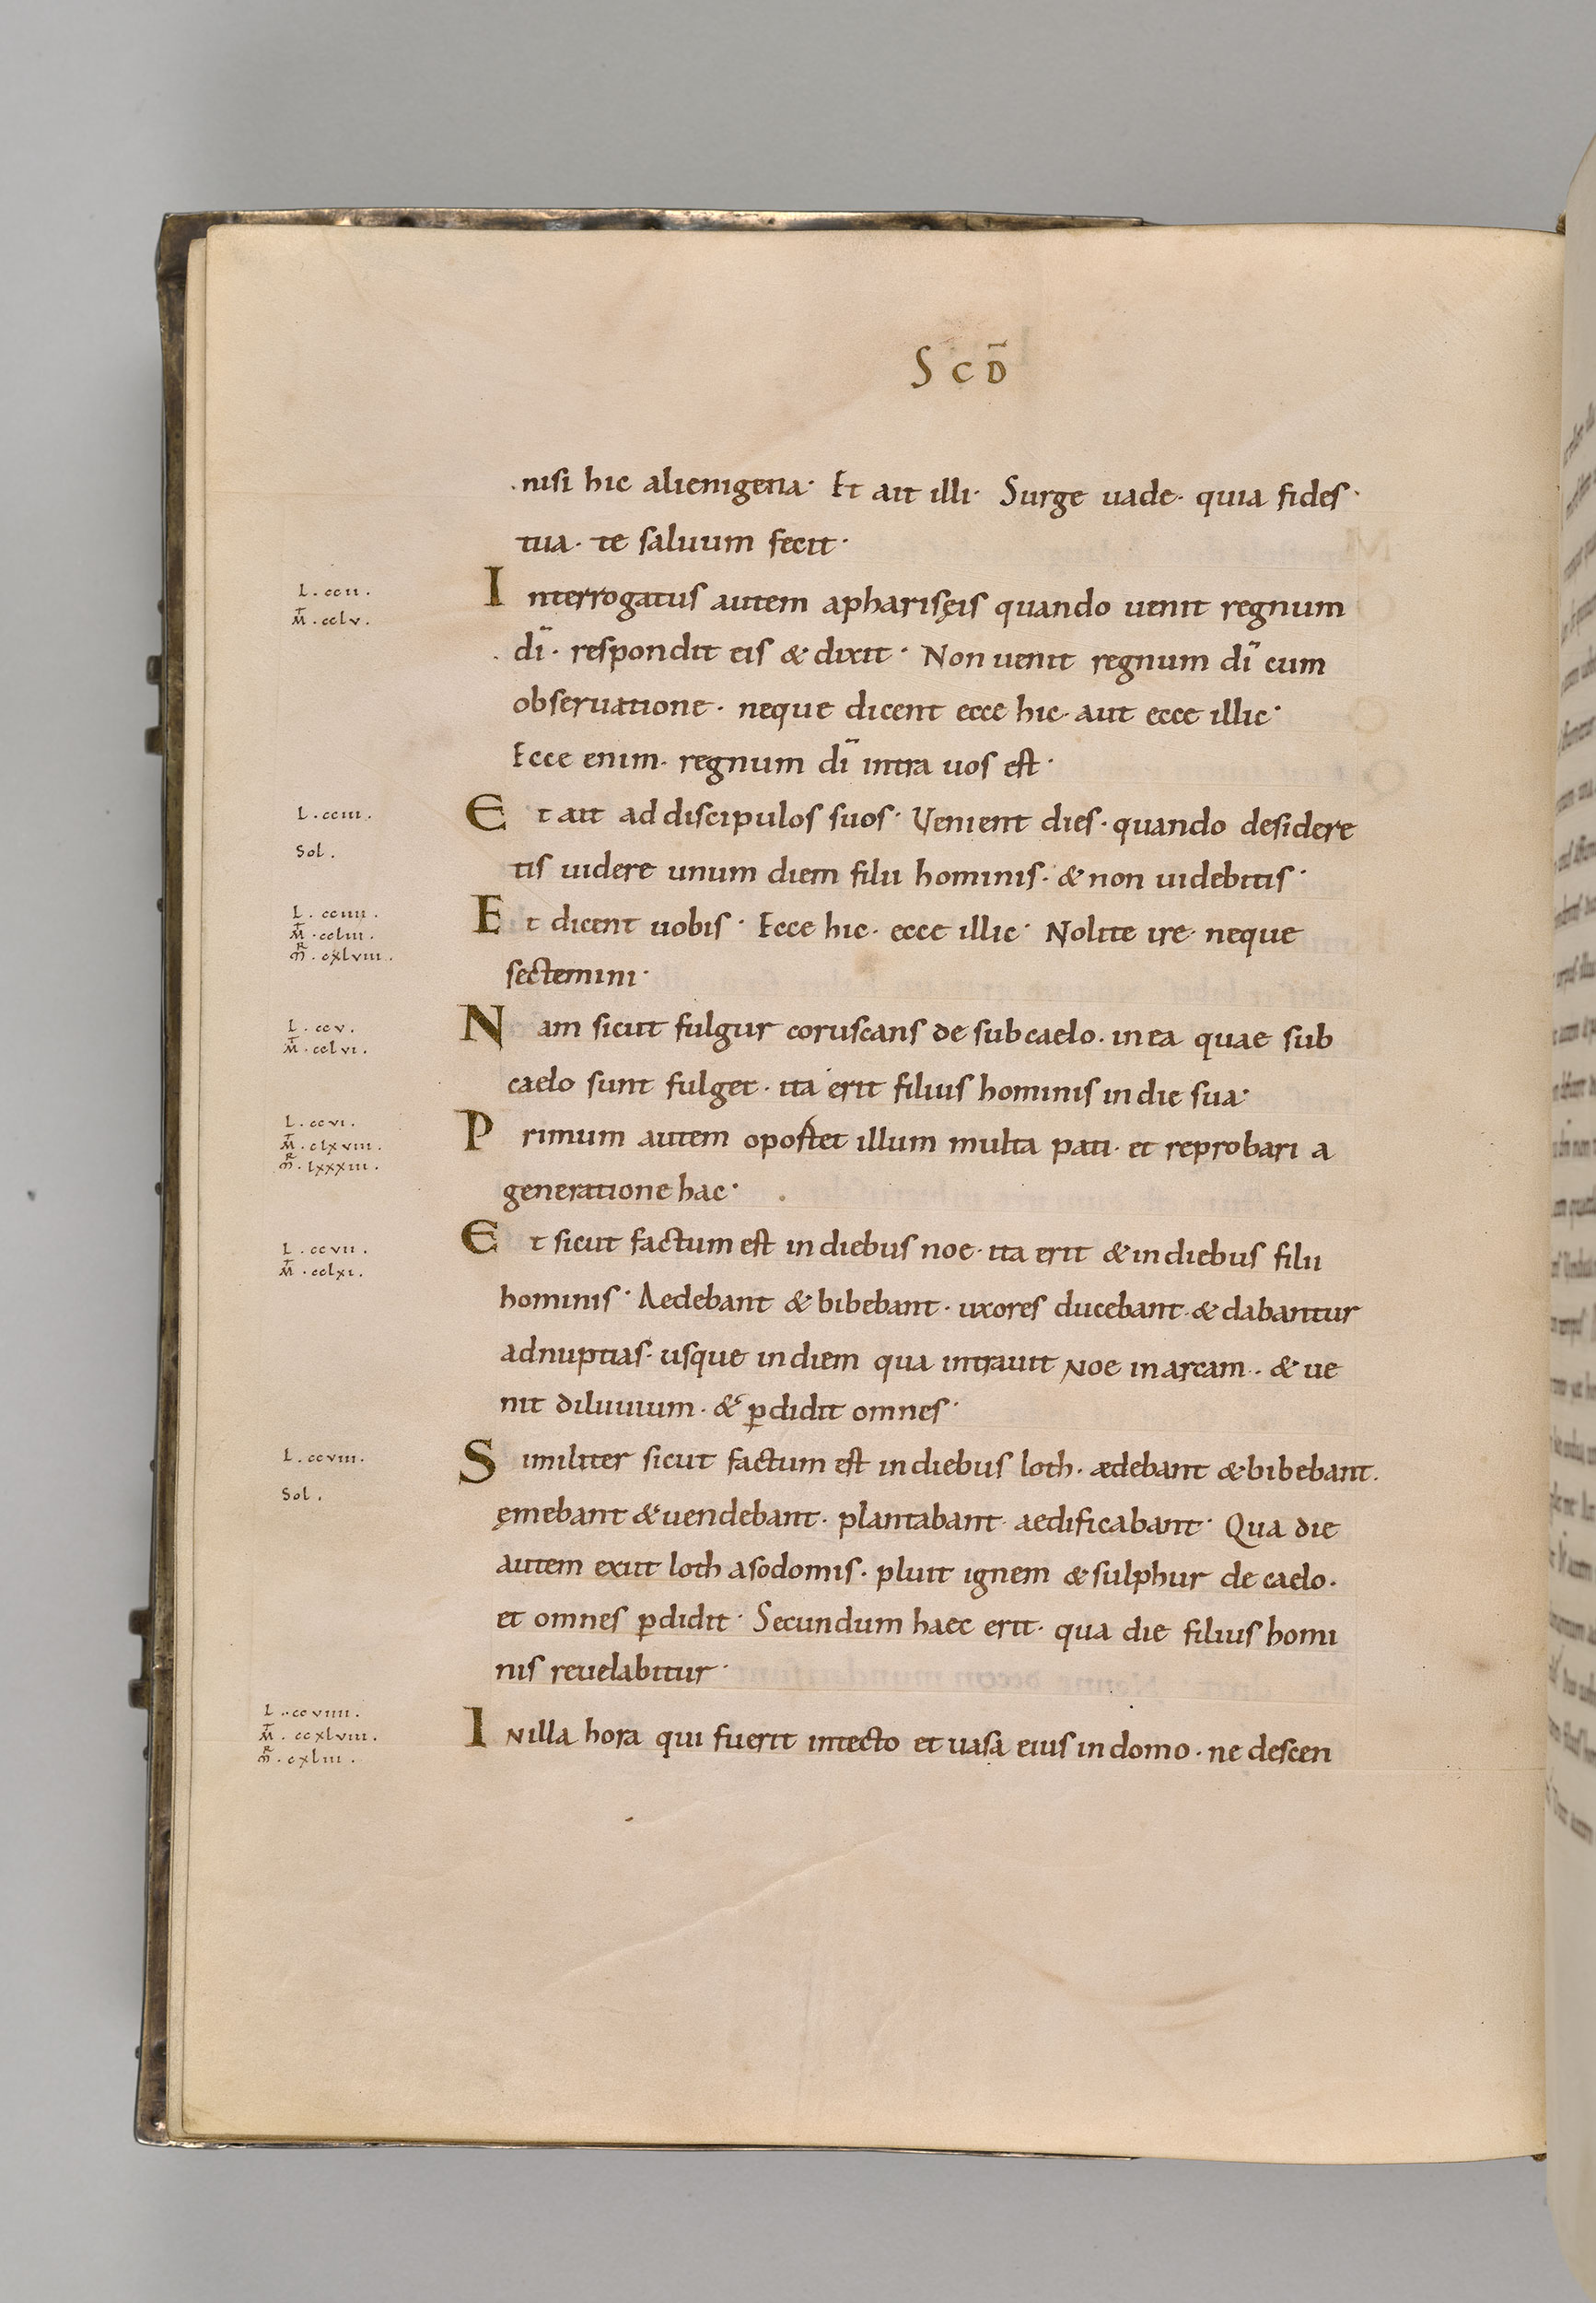 S C D̄
nisi hic alienigena· Et ait illi· Surge uade· quia fides·
tua· te saluum fecit·
L · ccii ·
M̄ · cclv ·
Interrogatus autem apharisęis quando uenit regnum
dī· respondit eis & dixit· Non uenit regnum dī cum
obseruatione· neque dicent ecce hic· aut ecce illic·
Ecce enim· regnum dī intra uos est·
L · cciii ·
Sol ·
Et ait ad discipulos suos· Uenient dies· quando desidere
tis uidere unum diem filii hominis· & non uidebitis·
L · cciiii ·
M̄ · ccliii ·
m · cxlviii ·
Et dicent uobis· Ecce hic· ecce illic· Nolite ire· neque
sectemini·
L · ccv ·
M̄ · cclvi ·
Nam sicut fulgur coruscans de sub caelo· in ea quae sub
caelo sunt fulget· ita erit filius hominis in die sua·
L · ccvi ·
M̄ · clxviii ·
m · lxxxiii ·
Primum autem opostet illum multa pati· et reprobari a
generatione hac·
L · ccvii ·
M̄ · cclxi ·
Et sicut factum est in diebus noe· ita erit & in diebus filii
hominis· Aedebant & bibebant· uxores ducebant· & dabantur
adnuptias· usque in diem qua intrauit Noe in arcam· & ue
nit diluuium· & ꝑdidit omnes·
L · ccviii ·
Sol ·
Similiter sicut factum est in diebus loth· ædebant & bibebant·
ęmebant & uendebant· plantabant· aedificabant· Qua die
autem exiit loth asodomis· pluit ignem & sulphur de caelo·
et omnes ꝑdidit· Secundum haec erit· qua die filius homi
nis reuelabitur·
L · ccviiii ·
M̄ · ccxlviii ·
m · cxliii ·
INilla hora qui fuerit intecto et uasa eius in domo· ne descen